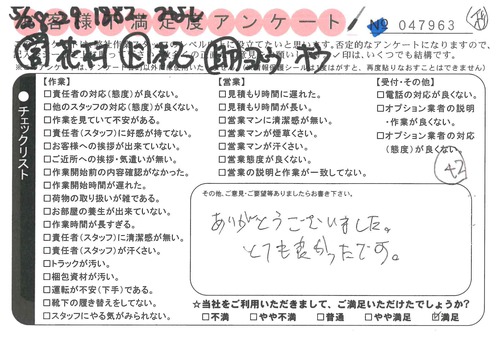 お客様不満足度アンケート
№ 047963
チェックリスト
【作業】
□責任者の対応(態度)が良くない。
□他のスタッフの対応(態度)が良くない。
□作業を見ていて不安がある。
□責任者(スタッフ)に好感が持てない。
□お客様への挨拶が出来ていない。
□ご近所への挨拶・気遣いが無い。
□作業開始前の内容確認がなかった。
□作業開始時間が遅れた。
□荷物の取り扱いが雑である。
□お部屋の養生が出来ていない。
□作業時間が長すぎる。
□責任者(スタッフ)に清潔感が無い。
□責任者(スタッフ)が汗くさい。
□トラックが汚い。
□梱包資材が汚い。
□運転が不安(下手)である。
□靴下の履き替えをしてない。
□スタッフにやる気がみられない。
【営業】
□見積もり時間に遅れた。
□見積もり時間が長い。
□営業マンに清潔感が無い。
□営業マンが煙草くさい。
□営業マンが汗くさい。
□営業態度が良くない。
□営業の説明と作業が一致してない。
【受付・その他】
□電話の対応が良くない。
□オプション業者の説明
・作業が良くない。
□オプション業者の対応
(態度)が良くない。
42
その他、ご意見・ご要望等ありましたらお書き下さい。
ありがとうございました。
とても良かったです。
☆当社をご利用いただきまして、ご満足いただけたでしょうか?
□不満 □やや不満 □普通 □やや満足 ☑満足